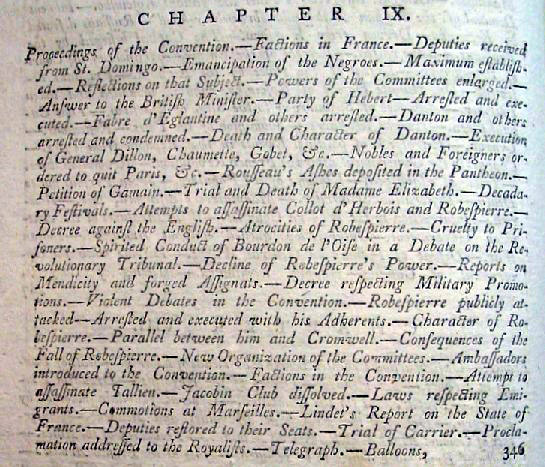 CHAPTER IX.
Proceedings of the Convention.—Factions in France.—Deputies received
from St. Domingo.—Emancipation of the Negroes.—Maximum establiſh-
ed.—Reflections on that Subject.—Powers of the Committees enlarged.—
Anſwer to the Britiſh Miniſter.—Party of Hebert—Arreſted and exe-
cuted.—Fabre d'Eglantine and others arreſted.—Danton and others
arreſted and condemned.—Death and Character of Danton.—Execution
of General Dillon, Chaumette, Gobet, &c.—Nobles and Foreigners or-
dered to quit Paris, &c.—Rouſſeau's Aſhes depoſited in the Pantheon.—
Petition of Gamain.—Trial and Death of Madame Elizabeth.—Decada-
ry Feſtivals.—Attempts to aſſaſſinate Collot d'Herbois and Robeſpierre.—
Decree againſt the Engliſh.—Atrocities of Robeſpierre.—Cruelty to Pri-
ſoners.—Spirited Conduct of Bourdon de l'Oiſe in a Debate on the Re-
volutionary Tribunal.—Decline of Robeſpierre's Power.—Reports on
Mendicity and forged Aſſignats.—Decree reſpecting Military Promo-
tions.—Violent Debates in the Convention.—Robeſpierre publicly at-
tacked—Arreſted and executed with his Adherents.—Character of Ro-
beſpierre.—Parallel between him and Cromwell.—Conſequences of the
Fall of Robeſpierre.—New Organization of the Committees.—Ambaſſadors
introduced to the Convention.—Factions in the Convention.—Attempt to
aſſaſſinate Tallien.—Jacobin Club diſſolved.—Laws reſpecting Emi-
grants.—Commotions at Marſeilles.—Lindet's Report on the State of
France.—Deputies reſtored to their Seats.—Trial of Carrier.—Procla-
mation addreſſed to the Royaliſts.—Telegraph.—Balloons, 346